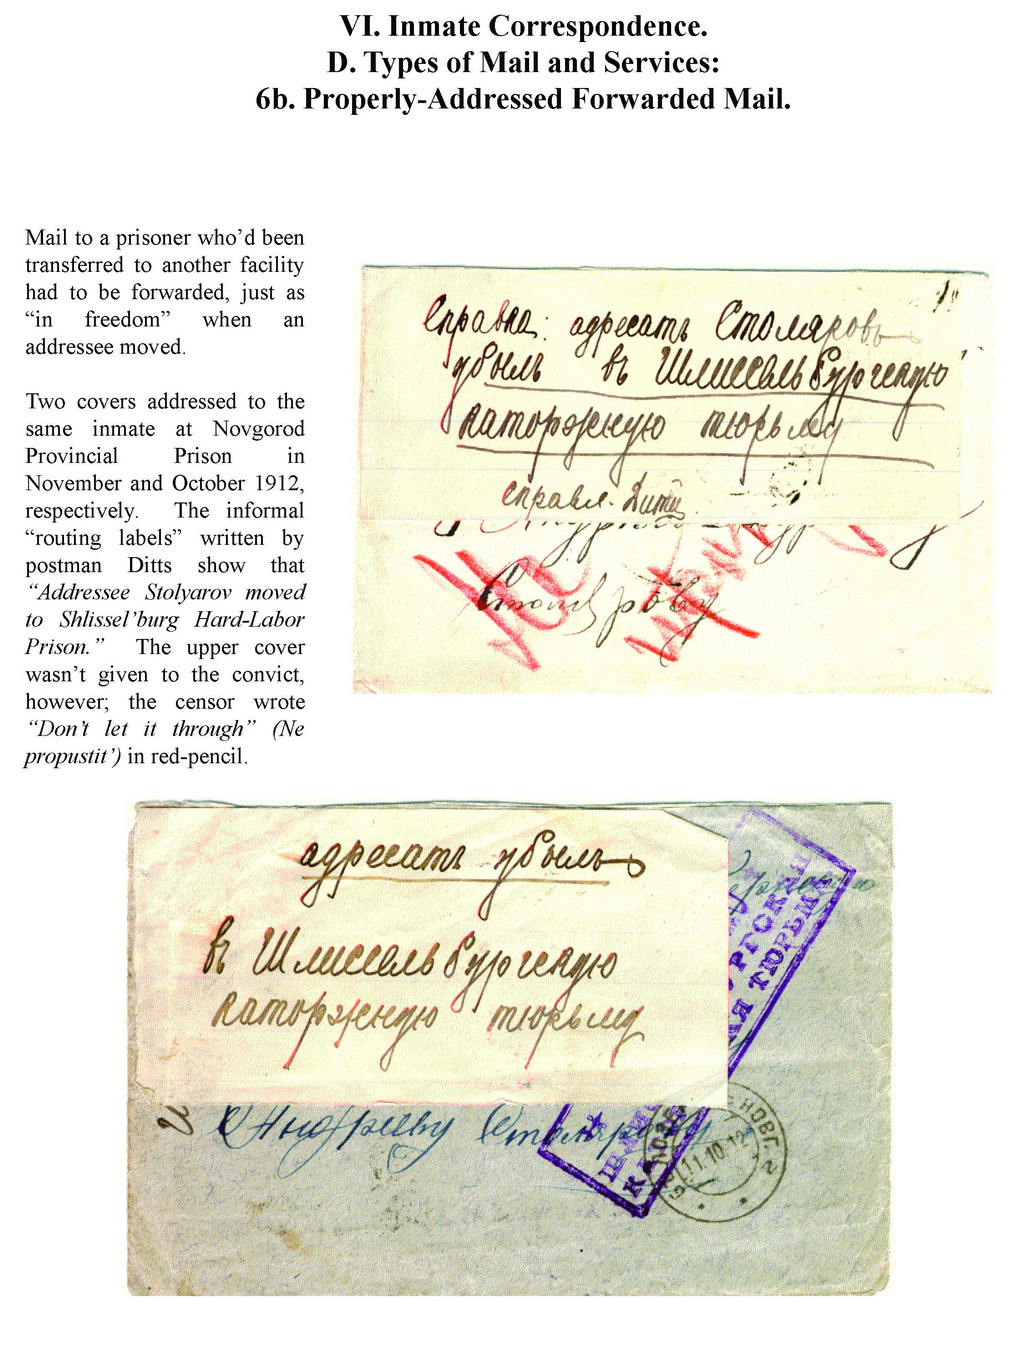 VI. Inmate Correspondence.
D. Types of Mail and Services:
6b. Properly-Addressed Forwarded Mail.
Mail to a prisoner who’d been
transferred to another facility
had to be forwarded, just as
“in freedom” when an
addressee moved.
Two covers addressed to the
same inmate at Novgorod
Provincial Prison in
November and October 1912,
respectively. The informal
“routing labels” written by
postman Ditts show that
“Addressee Stolyarov moved
to Shlissel’burg Hard-Labor
Prison.” The upper cover
wasn’t given to the convict,
however; the censor wrote
“Don’t let it through” (Ne
propustit’) in red-pencil.
Справка: адресатъ Столяровъ
убылъ въ Шлиссельбургскую
каторжную тюрьму
справл. Дитц
Столярову
адресатъ убылъ
въ Шлиссельбургскую
каторжную тюрьму
Андрееву Столярову
РГСКАЯ
АЯ ТЮРЬМА
НОВГ.
11.10.12